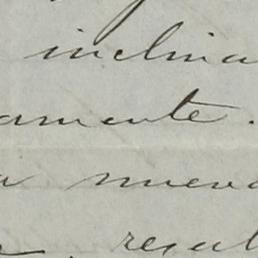 inclina
amente.
a nueva
resul